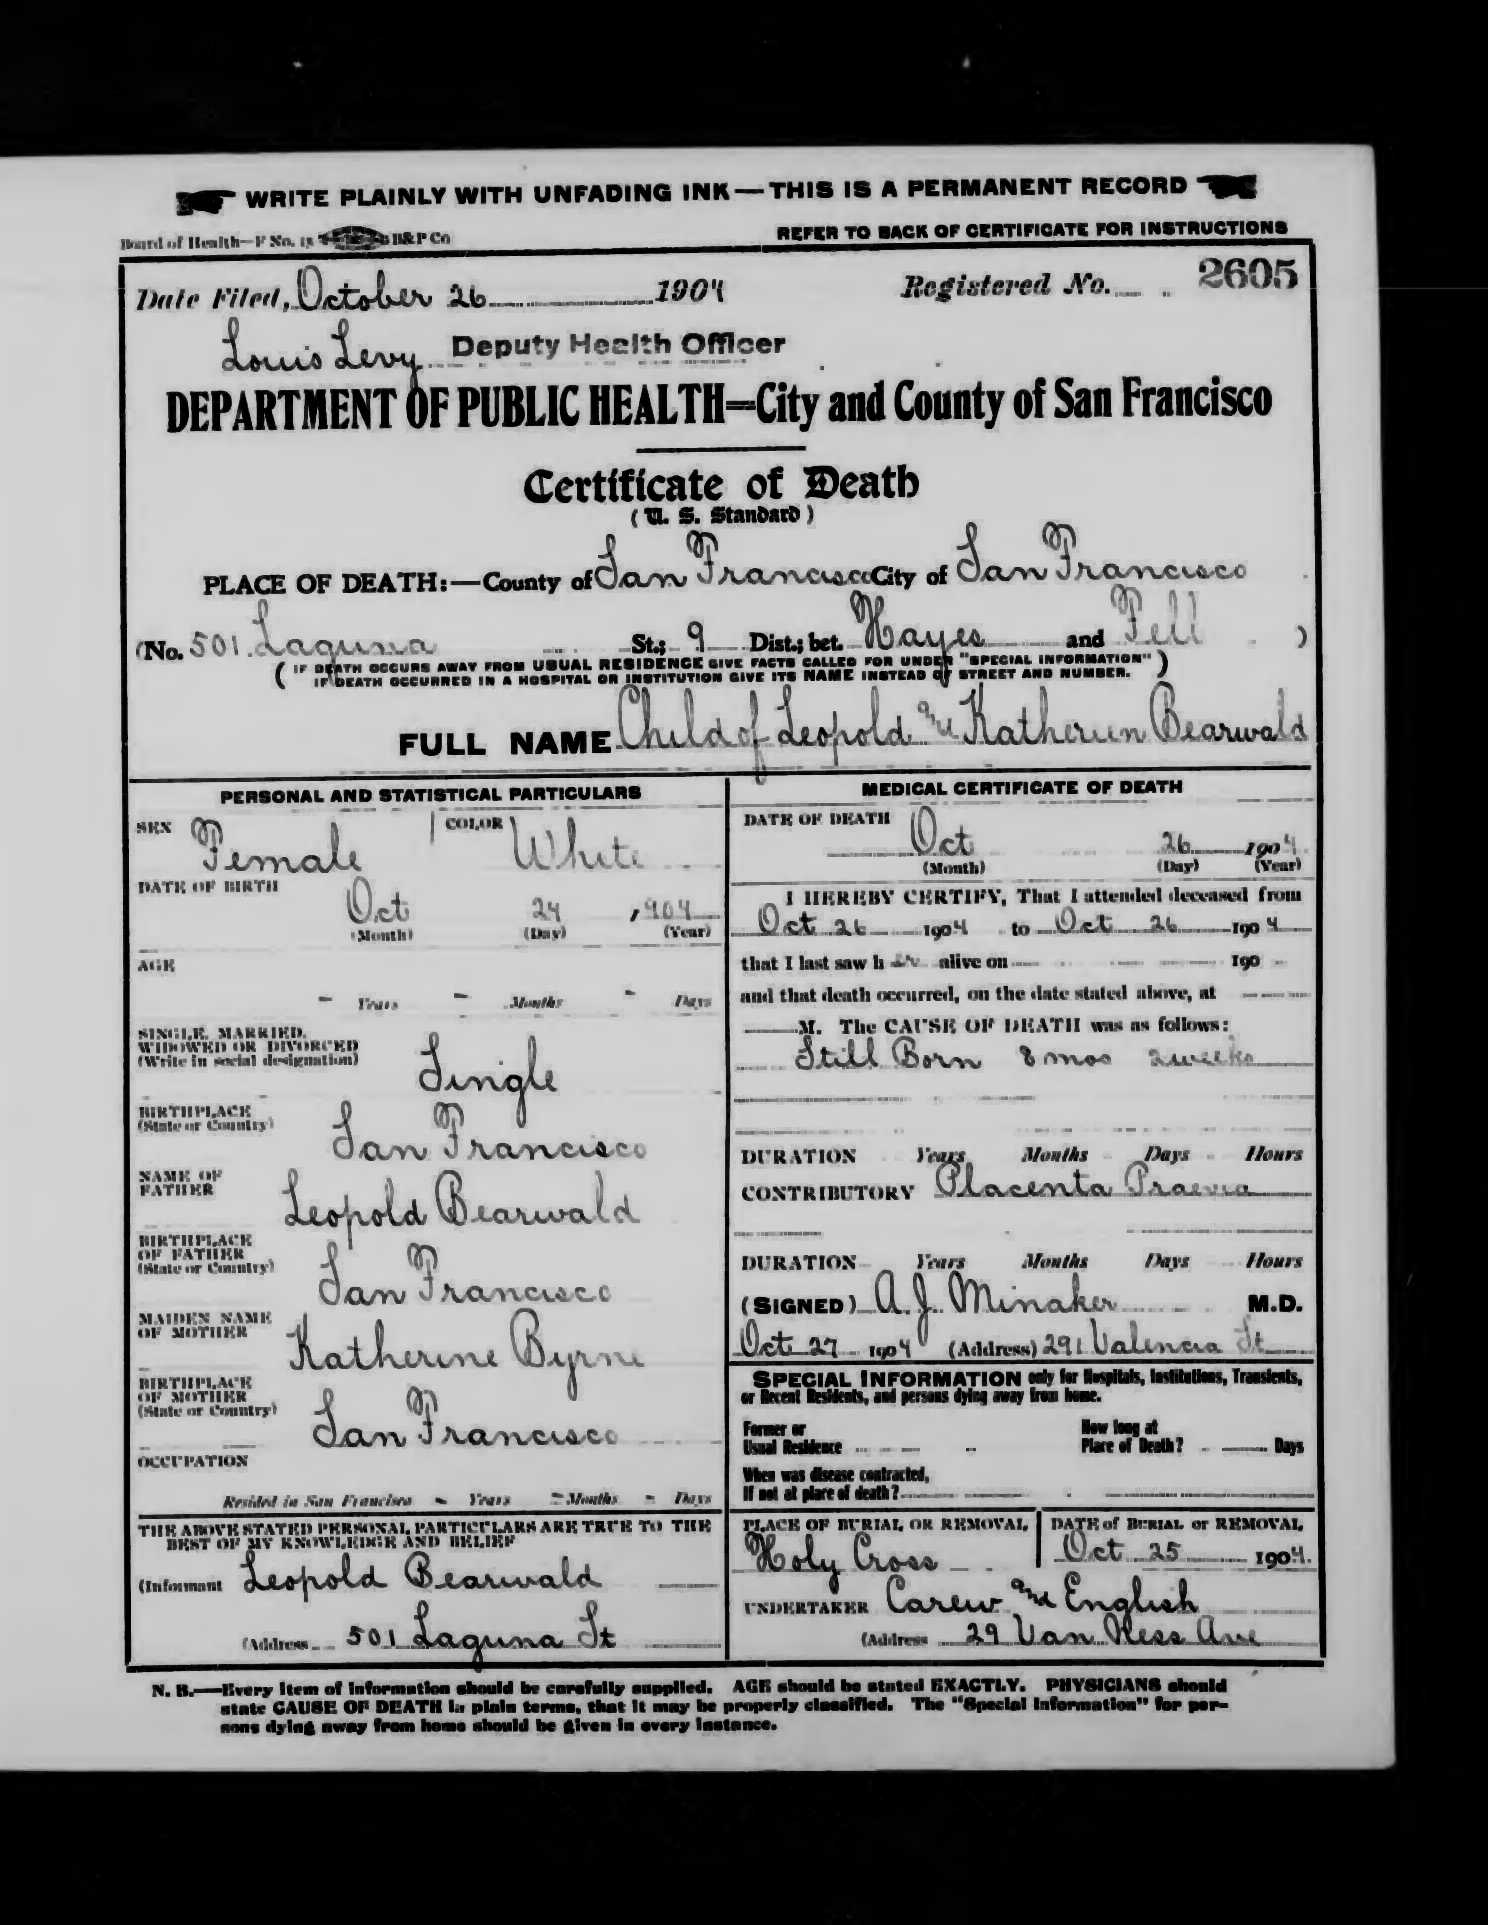 WRITE PLAINLY WITH UNFADING INK—THIS IS A PERMANENT RECORD
Board of Health—F No. 15 B&P Co
REFER TO BACK OF CERTIFICATE FOR INSTRUCTIONS
Date Filed, October 26 1904 Registered No. 2605
Louis Levy Deputy Health Officer
DEPARTMENT OF PUBLIC HEALTH—City and County of San Francisco
Certificate of Death
( U. S. Standard )
PLACE OF DEATH:—County of San Francisco City of San Francisco
(No. 501 Laguna St.; 9 Dist.; bet. Hayes and Fell )
( IF DEATH OCCURS AWAY FROM USUAL RESIDENCE GIVE FACTS CALLED FOR UNDER "SPECIAL INFORMATION" )
( IF DEATH OCCURRED IN A HOSPITAL OR INSTITUTION GIVE ITS NAME INSTEAD OF STREET AND NUMBER. )
FULL NAME Child of Leopold and Katherien Bearwald
PERSONAL AND STATISTICAL PARTICULARS
SEX Female COLOR White
DATE OF BIRTH
Oct 24 , 904
(Month) (Day) (Year)
AGE
– Years – Months – Days
SINGLE, MARRIED,
WIDOWED OR DIVORCED
(Write in social designation)
Single
BIRTHPLACE
(State or Country)
San Francisco
NAME OF
FATHER
Leopold Bearwald
BIRTHPLACE
OF FATHER
(State or Country)
San Francisco
MAIDEN NAME
OF MOTHER
Katherine Byrne
BIRTHPLACE
OF MOTHER
(State or Country)
San Francisco
OCCUPATION
Resided in San Francisco – Years – Months – Days
THE ABOVE STATED PERSONAL PARTICULARS ARE TRUE TO THE
BEST OF MY KNOWLEDGE AND BELIEF
(Informant Leopold Bearwald
(Address 501 Laguna St
MEDICAL CERTIFICATE OF DEATH
DATE OF DEATH
Oct 26 1904
(Month) (Day) (Year)
I HEREBY CERTIFY, That I attended deceased from
Oct 26 1904 to Oct 26 1904
that I last saw h er alive on 190
and that death occurred, on the date stated above, at
M. The CAUSE OF DEATH was as follows:
Still Born 8 mos 2 weeks
DURATION Years Months Days Hours
CONTRIBUTORY Placenta Praevia
DURATION Years Months Days Hours
(SIGNED) A. J. Minaker M.D.
Oct 27 1904 (Address) 291 Valencia St
SPECIAL INFORMATION only for Hospitals, Institutions, Transients,
or Recent Residents, and persons dying away from home.
Former or
Usual Residence
How long at
Place of Death? Days
When was disease contracted,
If not at place of death?
PLACE OF BURIAL OR REMOVAL
Holy Cross
DATE of BURIAL or REMOVAL
Oct 25 1904.
UNDERTAKER Carew and English
(Address 29 Van Ness Ave
N. B.—Every item of information should be carefully supplied. AGE should be stated EXACTLY. PHYSICIANS should
state CAUSE OF DEATH in plain terms, that it may be properly classified. The "Special Information" for per-
sons dying away from home should be given in every instance.